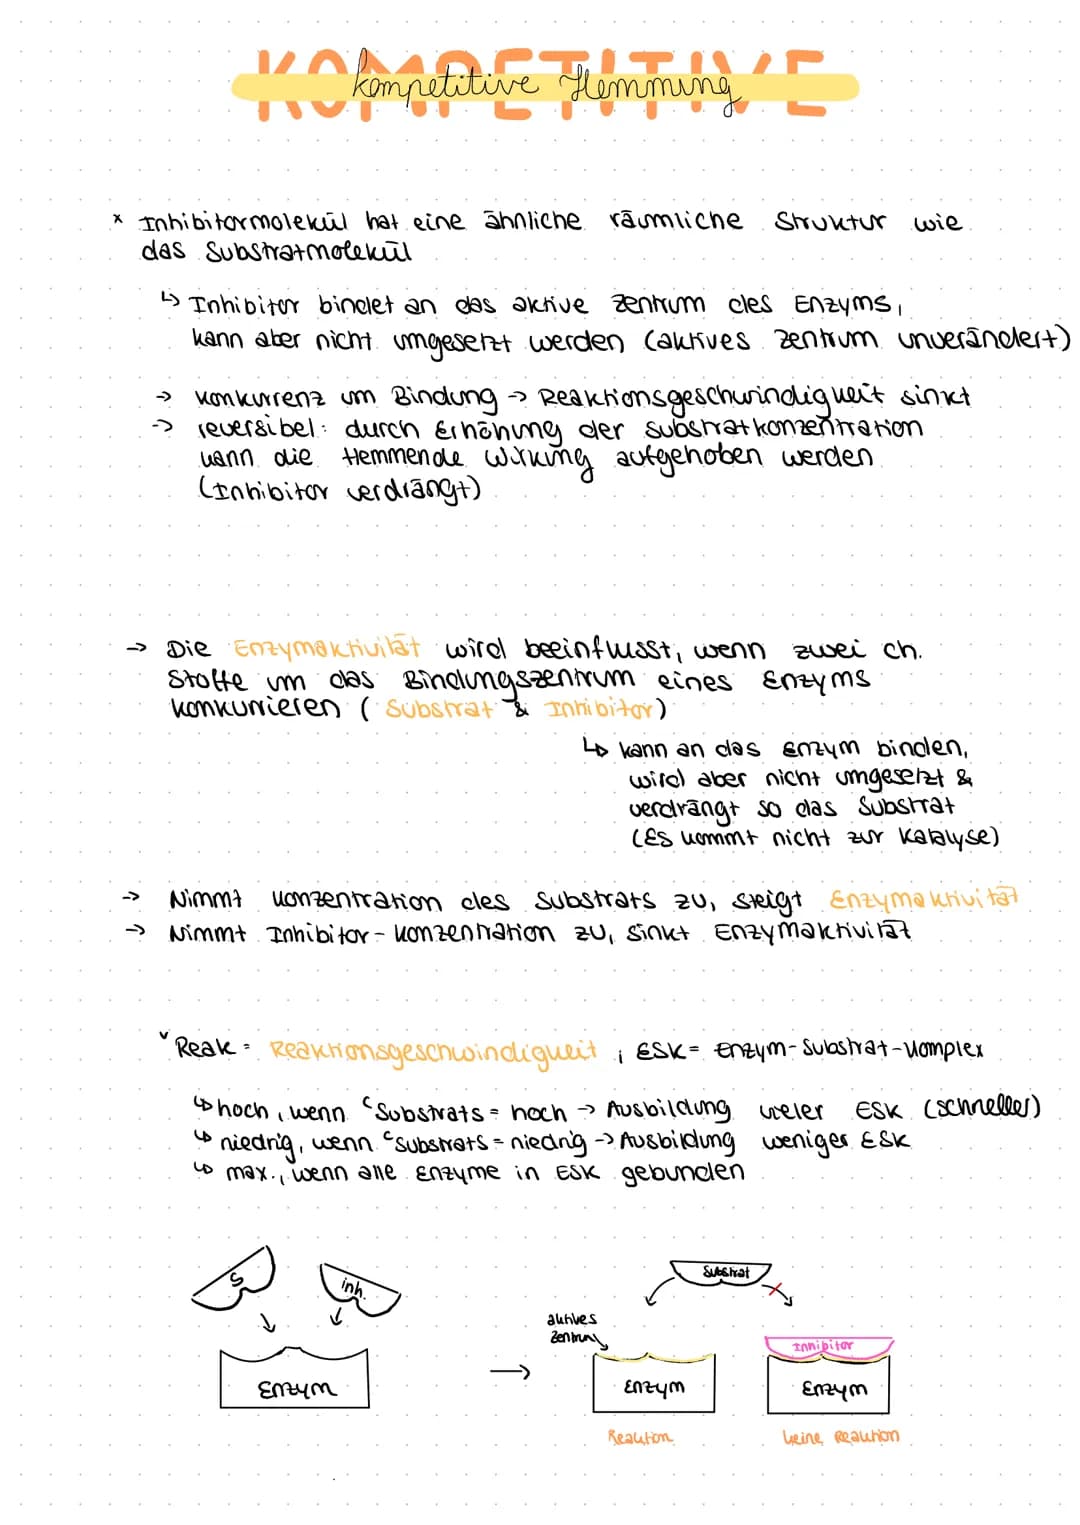 KOMPETITIVE
kompetitive Hemmung
x Inhibitormolekül hat eine ähnliche räumliche Struktur wie
das Substratmolekül
↳ Inhibitor bindet an das aktive Zentrum des Enzyms,
kann aber nicht umgesetzt werden (aktives Zentrum unverändert)
→ Konkurrenz um Bindung → Reaktionsgeschwindigkeit sinkt
→ reversibel: durch Erhöhung der Substratkonzentration
kann die Hemmende Wirkung aufgehoben werden
(Inhibitor verdrängt)
→ Die Enzymaktivität wird beeinflusst, wenn zwei ch.
Stoffe um das Bindungszentrum eines Enzyms
konkurrieren (Substrat & Inhibitor)
↳ kann an das Enzym binden,
wird aber nicht umgesetzt &
verdrängt so das Substrat
(Es kommt nicht zur Katalyse)
→ Nimmt Konzentration des Substrats zu, steigt Enzymaktivität
→ Nimmt Inhibitor-Konzentration zu, sinkt Enzymaktivität
v Reak = Reaktionsgeschwindigkeit ; ESK = Enzym-Substrat-Komplex
↳ hoch, wenn c Substrats = hoch → Ausbildung vieler ESK (schneller)
↳ niedrig, wenn c Substrats = niedrig → Ausbildung weniger ESK
↳ max., wenn alle Enzyme in ESK gebunden
S
inh.
Enzym
→
Substrat
aktives
Zentrum
Enzym
Reaktion
Inhibitor
Enzym
keine Reaktion